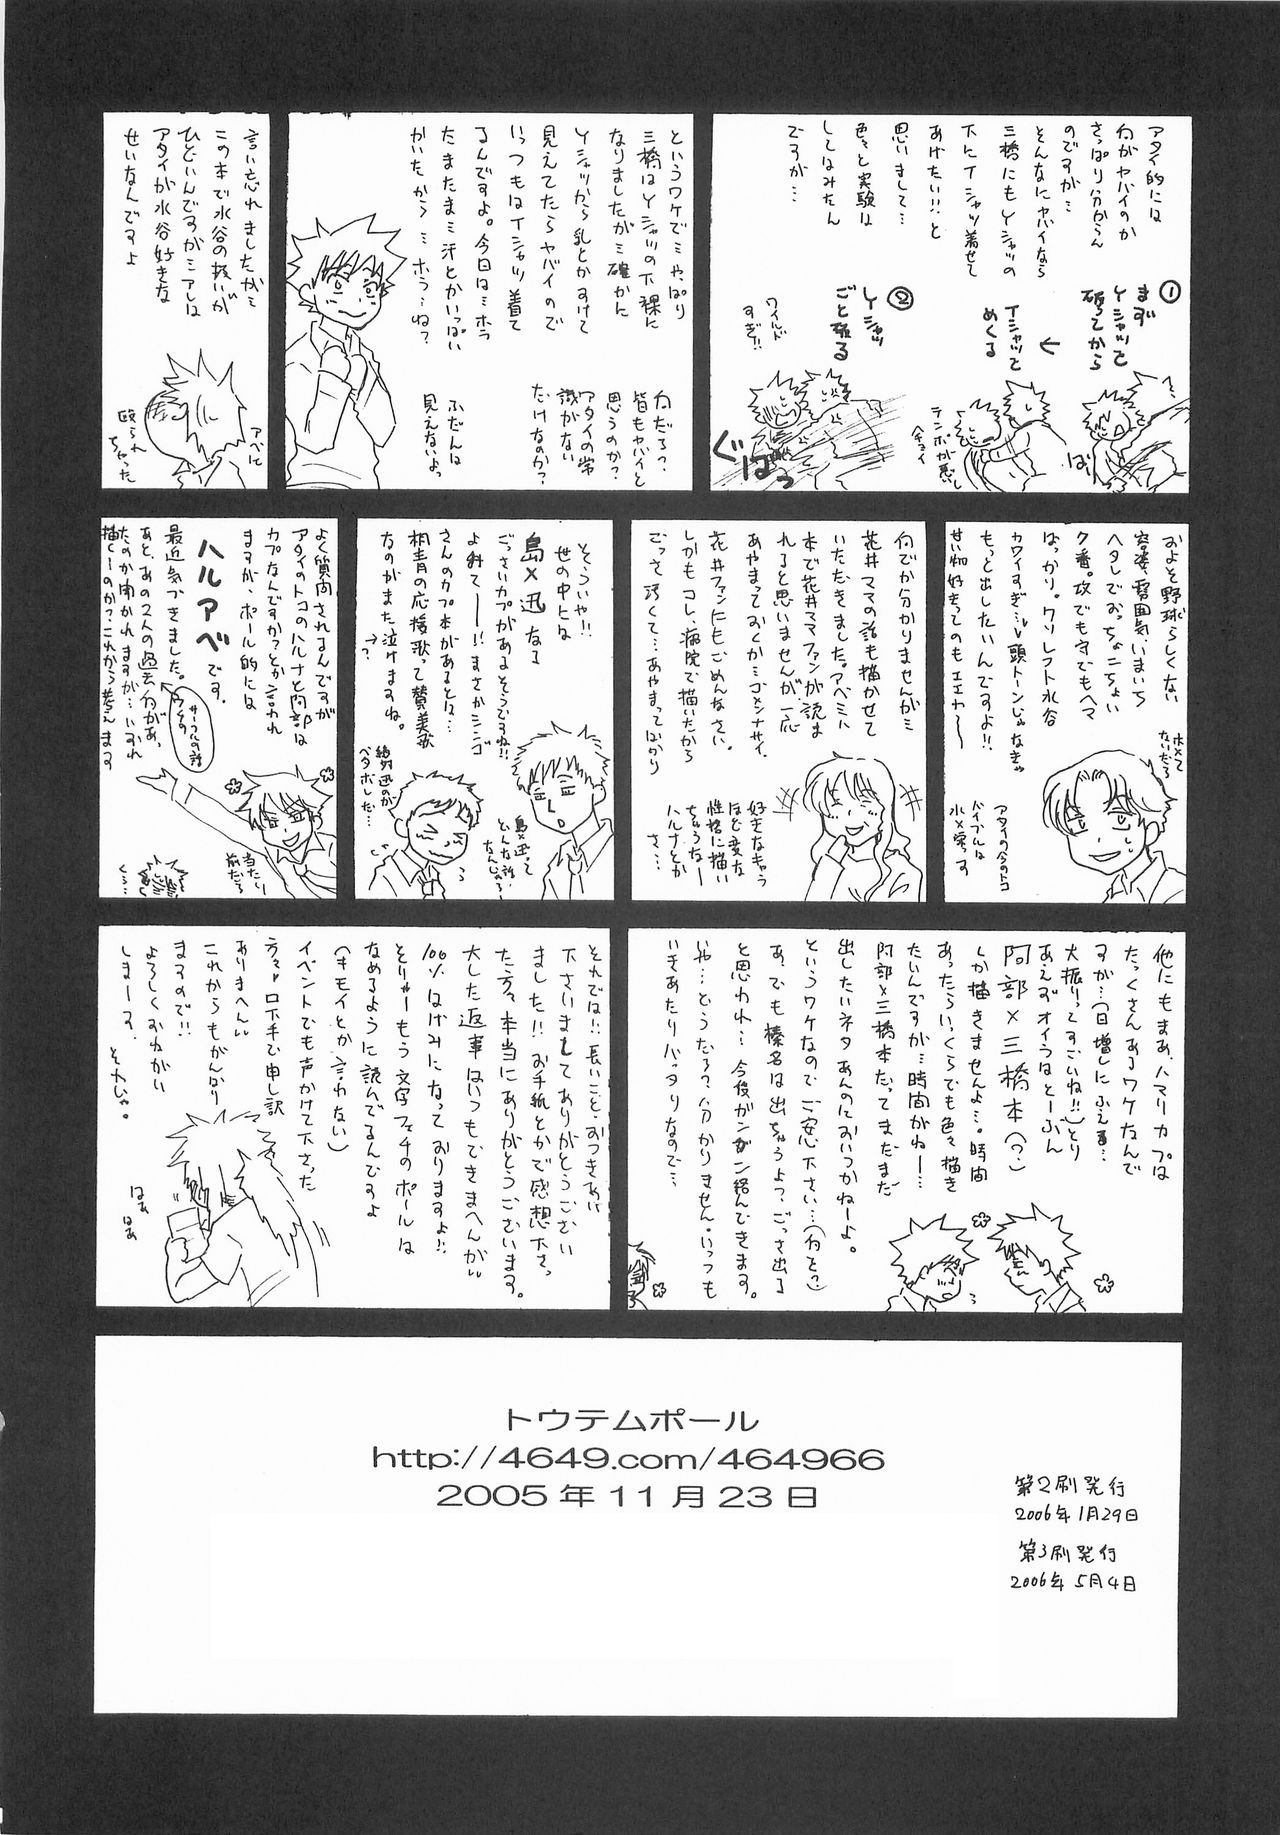 アタイ的には
何がヤバイのか
さっぱり分からん
のですが…
そんなにヤバイなら
三橋にもYシャツの
下にTシャツ着せて
あげたい!!と
思いまして…
色々と実験は
してはみたん
ですが…
①
まず
Yシャツを
破ってから
ばり
Tシャツを
めくる
テンポが悪い
②
Yシャツ
ごと破る
ワイルド
すぎ!!
というワケでミやっぱり
三橋はYシャツの下裸に
なりましたがミ確かに
Yシャツから乳とかすけて
見えてたらヤバイので
いっつもはTシャツ着て
るんですよ。今日はミホラ
たまたまミ汗とかいっぱい
かいたから…ホラ…ね?
何だろ?
皆もヤバイと
思うのか?
アタイの常
識がない
だけなのか?
ふだんは
見えないよっ
言い忘れましたがミ
この本で水谷の扱いが
ひどいんですがミアレは
アタイが水谷好きな
せいなんですよ
アベに
殴られ
ちゃった
およそ野球らしくない
容姿、雰囲気、いまいち
ヘタレでおっちょこちょい
ク番。攻でも守でもヘマ
ばっかり。クソレフト水谷
カワイすぎ…頭トーンじゃなきゃ
もっと出したいんですよ!!
せい畑好きってのもエエわ〜
ホメて
ないだろ
アタイの今のトコ
バイブルは
水×栄っす
何でか分かりませんがミ
花井ママの話も描かせて
いただきました。アベミハ
本で花井ママファンが読ま
れると思いませんが、一応
あやまっておくかミゴメンナサイ。
花井ファンにもごめんなさい。
しかもコレ、病院で描いたから
ごっさ汚くて…あやまってばかり
好きなキャラ
ほど変な
性格に描い
ちゃうなー
ハルナとか
さ…
そういや!!
世の中には
島×迅なる
ごっさいカプがあるそうですね!!
よみてーー!!まさかシンゴ
さんのカプ本があるとは…
桐青の応援歌って賛美歌
なのがまた泣けますね。
→?
島×迅って
どんな話
なんじゃろー
絶対迅のが
ベタボレした…
よく質問されるんですが
アタイのトコのハルナと阿部は
カプなんですか?とか言われ
ますが、ポール的には
ハルアベです。
最近気づきました。
あと、あの2人の過去
たのか聞かれますが…いずれ
描くーのか?これから考えます
当たり
前だろ
くっ…
他にもまあ、ハマリカプは
たっくさんあるワケなんで
すが…(日増しにふえる…
大振りってすごいね!!)とり
あえずオイラはとーぶん
阿部×三橋本(?)
しか描きませんよ…。時間
あったらいっくらでも色々描き
たいんですが…時間がねー…
阿部×三橋本だってまだまだ
出したいネタあんのにおいつかねーよ。
というワケなのでご安心下さい…(何を?)
あ、でも榛名は出ちゃうよ?ごっさ出る
と思われ…今後ガンガン絡んできます。
いや…どうだろ?分かりません。いっつも
いきあたりバッタリなので…
それでは!!長いこと、おつきあい
下さいましてありがとうござい
ました!!お手紙とかで感想下さっ
た方々、本当にありがとうございます。
大した返事はいつもできまへんが
100%はげみになっておりますよ!!
そりゃーもう文字フェチのポールは
なめるように読んでるんですよ
(キモイとか言わない)
イベントでも声かけて下さった
方々、口下手で申し訳
ありまへん
これからもがんばり
ますので!!
よろしくおねがい
しまーす。
それじゃ。
はぁ
はぁ
トウテムポール
http://4649.com/464966
2005年11月23日
第2刷発行
2006年1月29日
第3刷発行
2006年5月4日